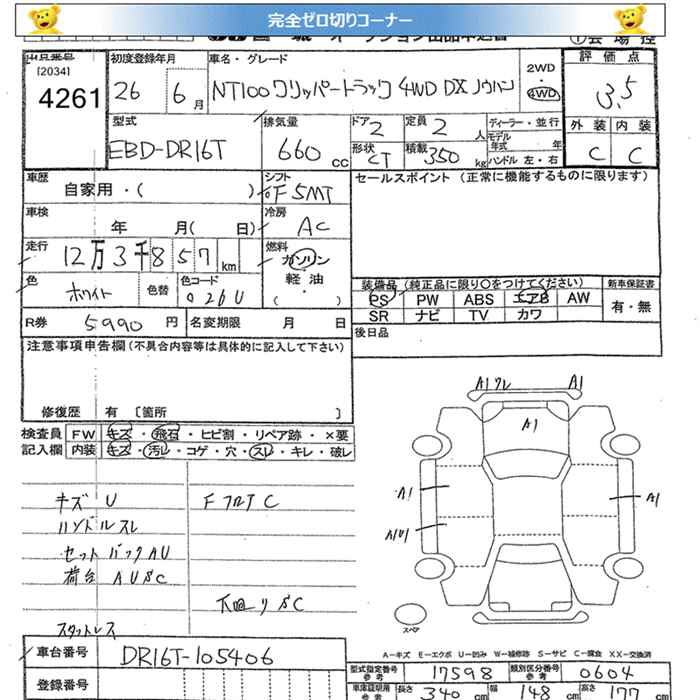 完全ゼロ切りコーナー
出品番号 初度登録年月 車名・グレード 2WD 評価点
[2034] 4261 26 6月 NT100クリッパートラック 4WD DX ノウハン 4WD 3.5
型式 排気量 ドア 2 定員 2人 ディーラー・並行 外装 内装
モデル年式 年
EBD-DR16T 660cc 形状 CT 積載 350kg ハンドル 左・右 C C
車歴 自家用・( ) シフト F5MT セールスポイント (正常に機能するものに限ります)
車検 年 月( 日) 冷房 AC
走行 12万3千857km 燃料 ガソリン
軽油
( ・ )
色 ホワイト 色替 色コード 026U
装備品 (純正品に限り○をつけてください) 新車保証書
PS PW ABS エアB AW 有・無
SR ナビ TV カワ
R券 5990円 名変期限 月 日 後日品
注意事項申告欄 (不具合内容等は具体的に記入して下さい)
修復歴 有 [箇所 ]
検査員 FW キズ・飛石・ヒビ割・リペア跡・×要
記入欄 内装 キズ・汚レ・コゲ・穴・スレ・キレ・破レ
A1 A1
A1
A1 A1
キズ U F フロア C
ハンドルスレ
セットバックAU
荷台 AUSC
下回りSC
スタットレス
スペア
A=キズ E=エクボ U=凹み W=補修跡 S=サビ C=腐食 XX=交換済
車台番号 DR16T-105406
型式指定番号 参考 17598 類別区分番号 参考 0604
登録番号
車庫証明用 参考 長さ 340cm 幅 148cm 高さ 177cm